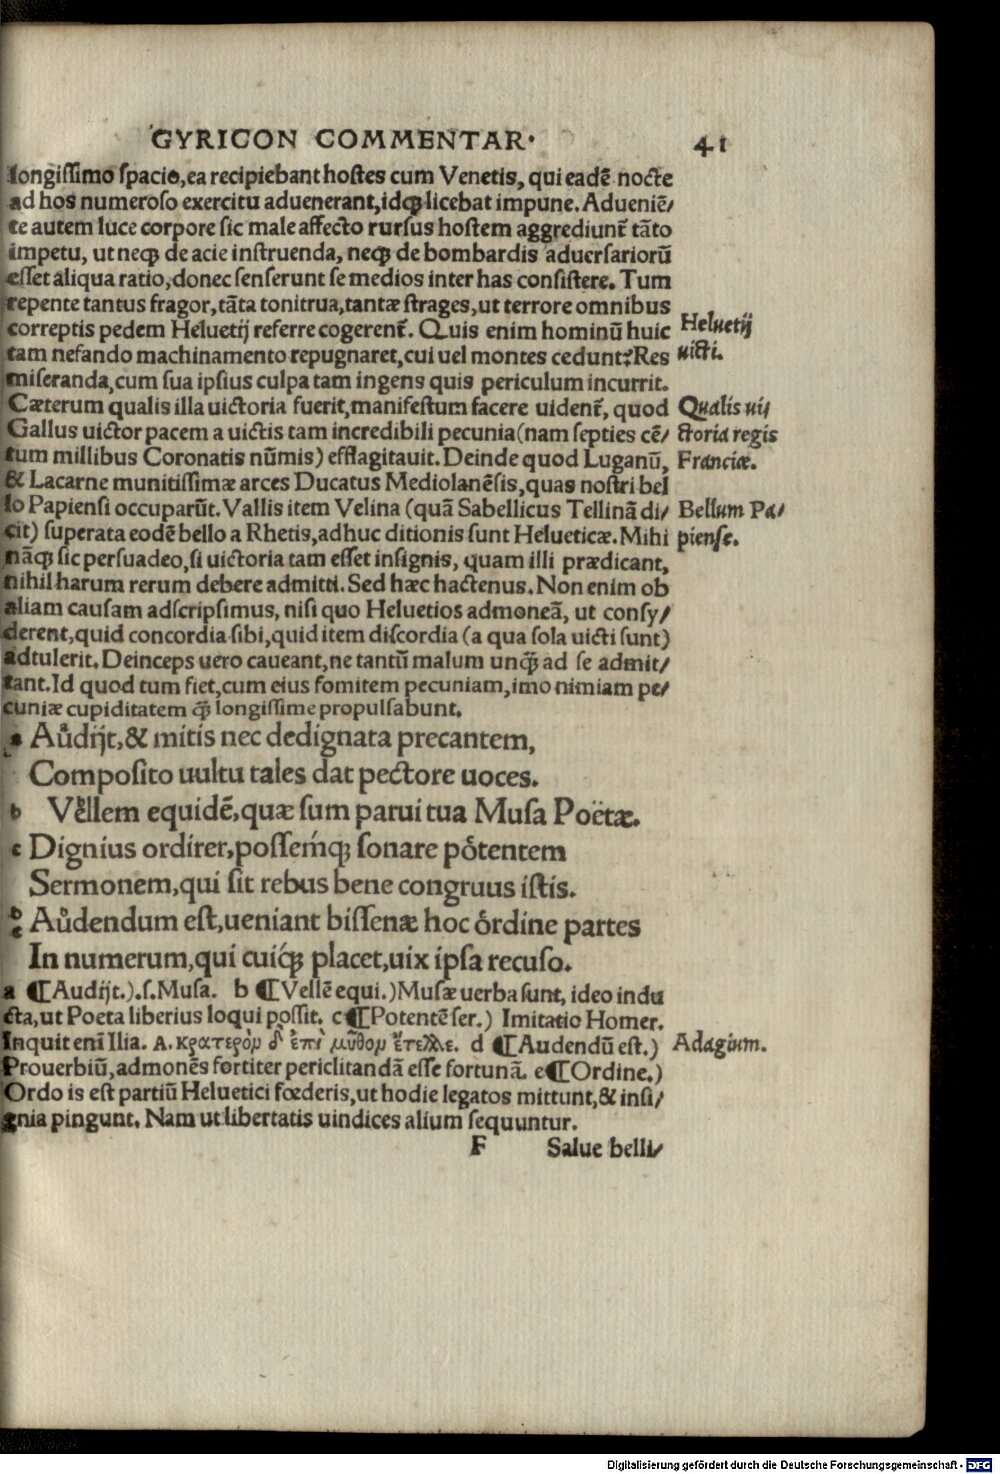 GYRICON COMMENTAR. 41
longissimo spacio,ea recipiebant hostes cum Venetis, qui eadē nocte
ad hos numeroso exercitu aduenerant,idq̢ licebat impune. Adueniē/
te autem luce corpore sic male affecto rursus hostem aggrediunt᷑ tāto
impetu, ut neq̢ de acie instruenda, neq̢ de bombardis aduersariorū
esset aliqua ratio,donec senserunt se medios inter has consistere. Tum
repente tantus fragor,tāta tonitrua,tantæ strages,ut terrore omnibus
correptis pedem Heluetij referre cogerent᷑. Quis enim hominū huic
Heluetij
tam nefando machinamento repugnaret,cui uel montes cedunt?Res
uicti.
miseranda,cum sua ipsius culpa tam ingens quis periculum incurrit.
Cæterum qualis illa uictoria fuerit,manifestum facere uident᷑, quod
Qualis ui/
Gallus uictor pacem a uictis tam incredibili pecunia(nam septies cē/
ctoria regis
tum millibus Coronatis nūmis) efflagitauit. Deinde quod Luganū,
Franciæ.
& Lacarne munitissimæ arces Ducatus Mediolanēsis,quas nostri bel
lo Papiensi occuparūt. Vallis item Velina (quā Sabellicus Tellinā di/
Bellum Pa/
cit) superata eodē bello a Rhetis,adhuc ditionis sunt Helueticæ. Mihi
piense.
nāq̢ sic persuadeo,si uictoria tam esset insignis, quam illi prædicant,
nihil harum rerum debere admitti. Sed hæc hactenus. Non enim ob
aliam causam adscripsimus, nisi quo Heluetios admoneā, ut consy/
derent,quid concordia sibi,quid item discordia (a qua sola uicti sunt)
adtulerit. Deinceps uero caueant,ne tantū malum unq̃ ad se admit/
tant. Id quod tum fiet,cum eius fomitem pecuniam,imo nimiam pe/
cuniæ cupiditatem q̃ longissime propulsabunt.
a Audijt,& mitis nec dedignata precantem,
Composito uultu tales dat pectore uoces.
b Vellem equidē,quæ sum parui tua Musa Poëtæ.
c Dignius ordirer,possemq́; sonare potentem
Sermonem,qui sit rebus bene congruus istis.
d e Audendum est,ueniant bissenæ hoc ordine partes
In numerum,qui cuiq́; placet,uix ipsa recuso.
a ¶Audijt.).s.Musa. b ¶Vellē equi.)Musæ uerba sunt, ideo indu
cta,ut Poeta liberius loqui possit. c ¶Potentē ser.) Imitatio Homer.
Inquit enī Ilia. Α. κρατερὸν δ' ἐπὶ μῦθον ἔτελλε. d ¶Audendū est.)
Adagium.
Prouerbiū,admonēs fortiter periclitandā esse fortunā. e ¶Ordine.)
Ordo is est partiū Heluetici fœderis,ut hodie legatos mittunt,& insi/
gnia pingunt. Nam ut libertatis uindices alium sequuntur.
F Salue belli/
Digitalisierung gefördert durch die Deutsche Forschungsgemeinschaft - DFG